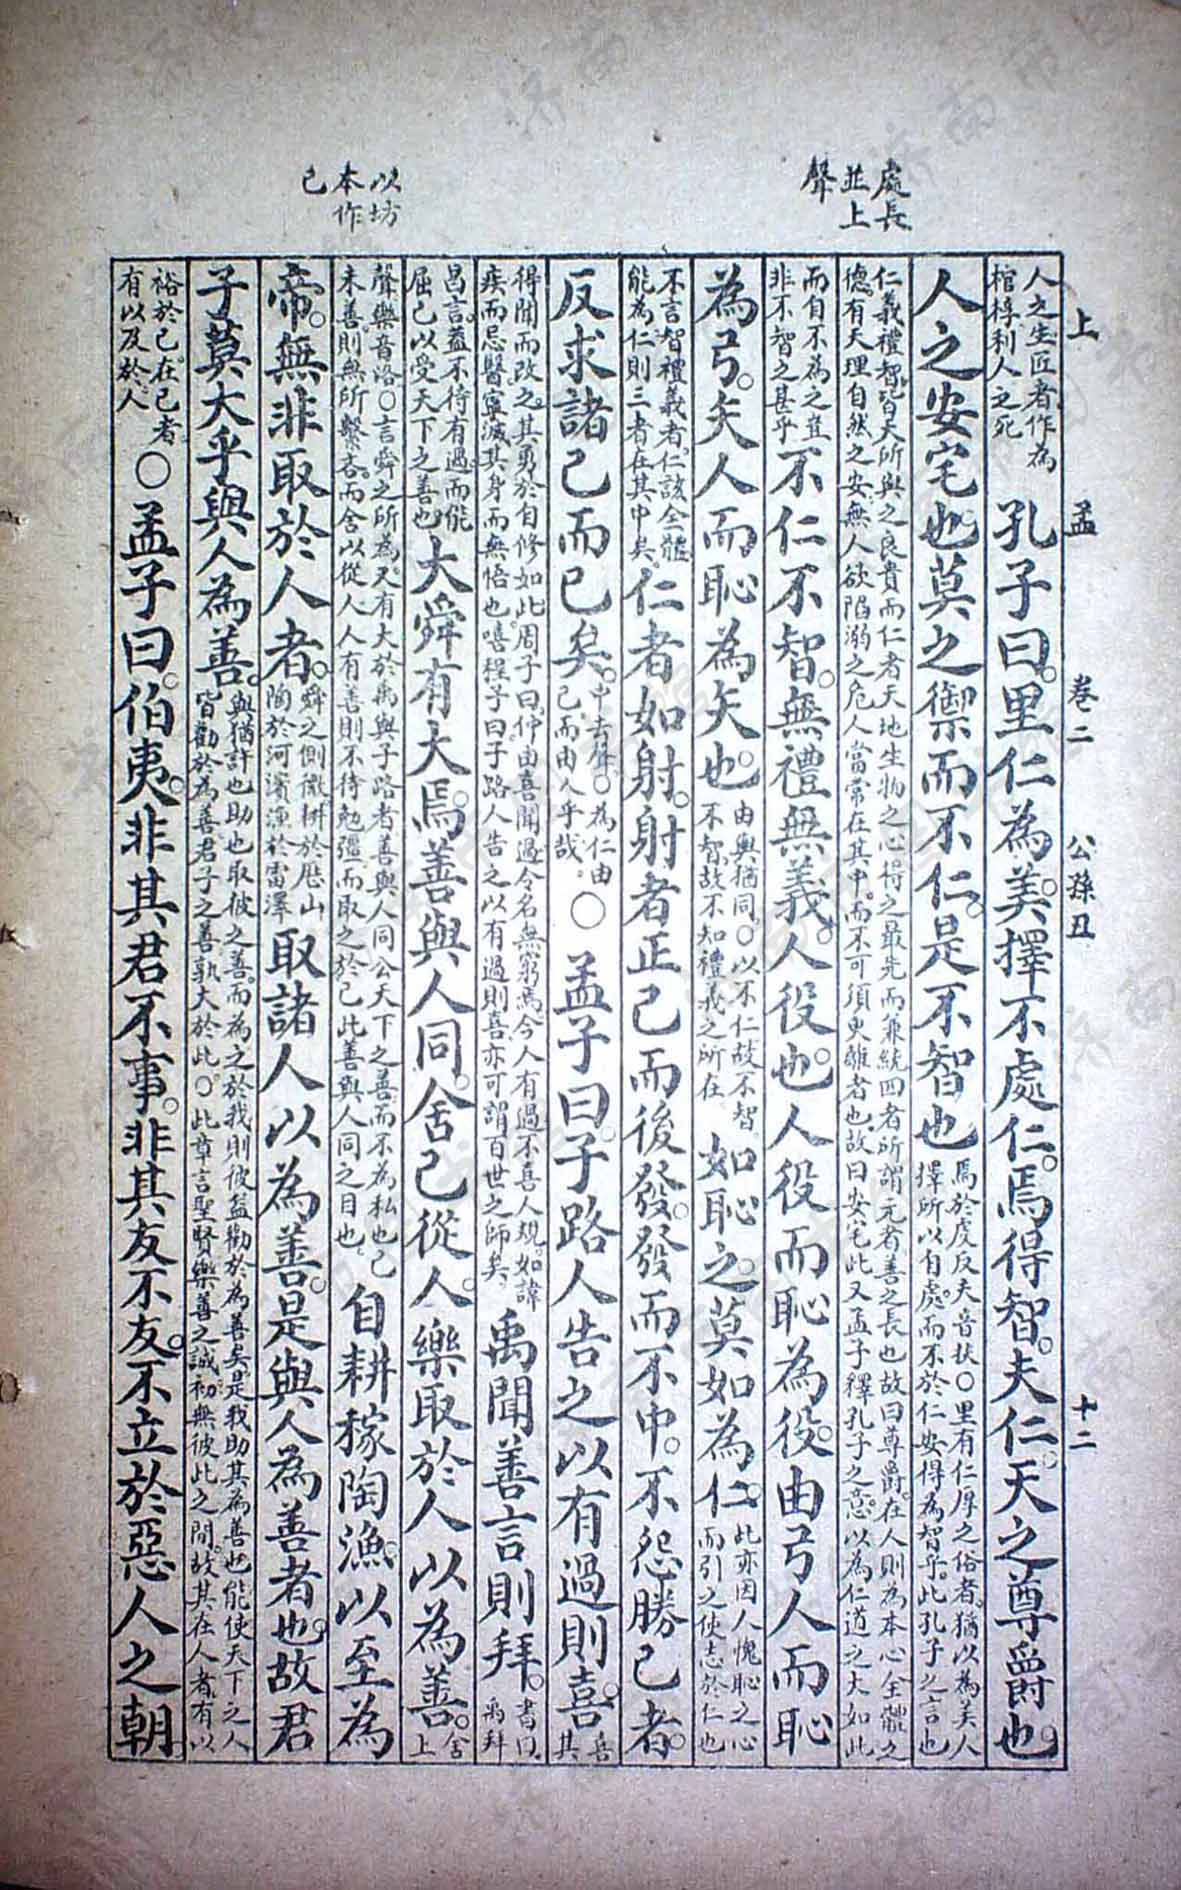 處長
並上
聲
以坊
本作
已
上 孟 卷二 公孫丑 十二
人之生匠者作為棺椁利人之死 孔子曰。里仁為美。擇不處仁。焉得智。夫仁。天之尊爵也。
人之安宅也。莫之禦而不仁。是不智也 焉於虔反夫音扶〇里有仁厚之俗者。猶以為美人擇所以自處。而不於仁安得為智乎。此孔子之言也
仁義禮智。皆天所與之良貴而仁者天地生物之心得之最先而兼統四者所謂元者善之長也故曰尊爵。在人則為本心全體之德。有天理自然之安。無人欲陷溺之危人當常在其中。而不可須臾離者也。故曰安宅此又孟子釋孔子之意。以為仁道之大如此
而自不為之豈非不智之甚乎 不仁不智。無禮無義。人役也。人役而恥為役。由弓人而恥
為弓。矢人而恥為矢也。由與猶同。〇以不仁故不智。不智。故不知禮義之所在 如恥之。莫如為仁。此亦因人愧恥之心而引之使志於仁也
不言智禮義者。仁該全體能為仁則三者在其中矣。仁者如射。射者正己而後發。發而不中。不怨勝己者。
反求諸己而已矣。中去聲。〇為仁由己而由人乎哉。〇孟子曰。子路人告之以有過則喜。喜其
得聞而改之。其勇於自修如此周子曰。仲由喜聞過令名無窮焉今人有過不喜人規。如諱疾而忌醫寧滅其身而無悟也。嘻程子曰子路人告之以有過則喜亦可謂百世之師矣。禹聞善言則拜。書曰。禹拜
昌言。蓋不待有過。而能屈己以受天下之善也 大舜有大焉。善與人同。舍己從人。樂取於人以為善。舍上
聲樂音洛〇言舜之所為。又有大於禹與子路者善與人同公天下之善而不為私也己未善。則無所繫吝。而舍以從人人有善則不待勉彊而取之於己此善與人同之目也。自耕稼陶漁。以至為
帝。無非取於人者。舜之側微耕於歷山陶於河濱漁於雷澤 取諸人以為善。是與人為善者也。故君
子莫大乎與人為善。與猶許也助也取彼之善。而為之於我則彼益勸於為善矣。是我助其為善也能使天下之人皆勸於為善君子之善孰大於此〇此章言聖賢樂善之誠初無彼此之間。故其在人者有以
裕於己。在己者。有以及於人 〇孟子曰。伯夷。非其君不事。非其友不友。不立於惡人之朝。